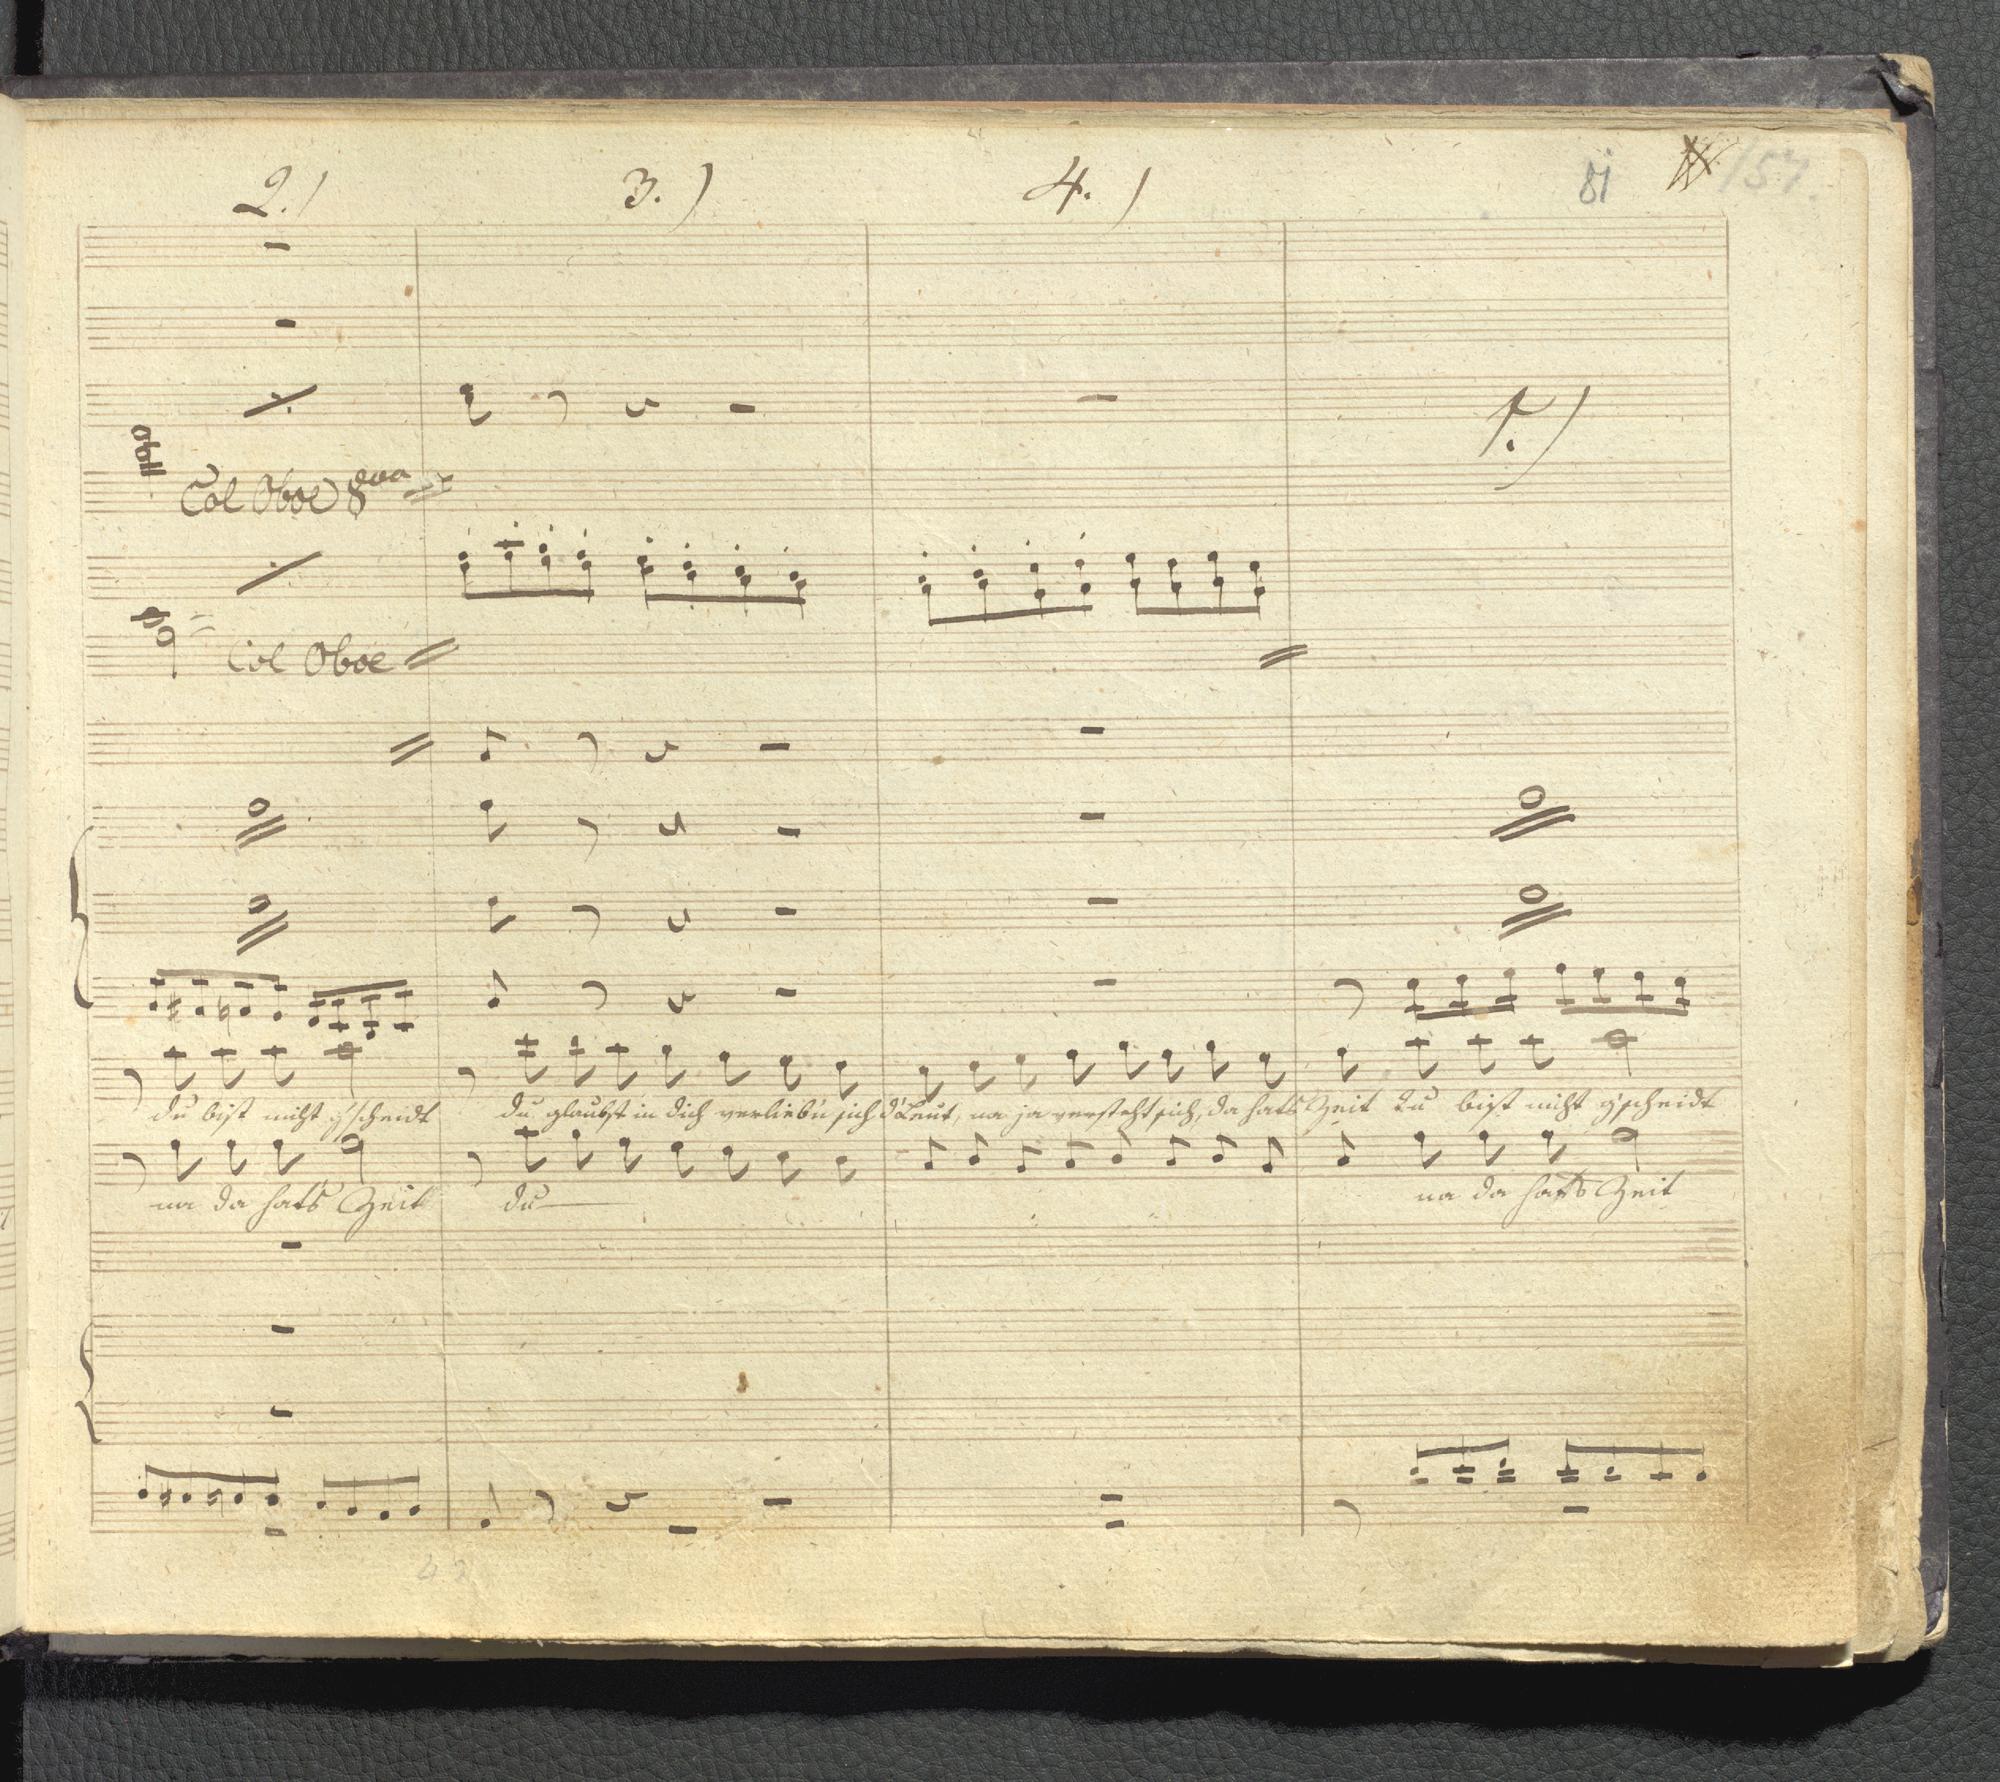 2.) 3.) 4.) 81 157.
1.)
Col Oboe 8va
Col Oboe
du bist nicht g'scheidt du glaubst in dich verlieb'n sich d'Leut, na ja versteht sich, da hats Zeit du bist nicht g'scheidt
na da hats Zeit du na da hats Zeit
42